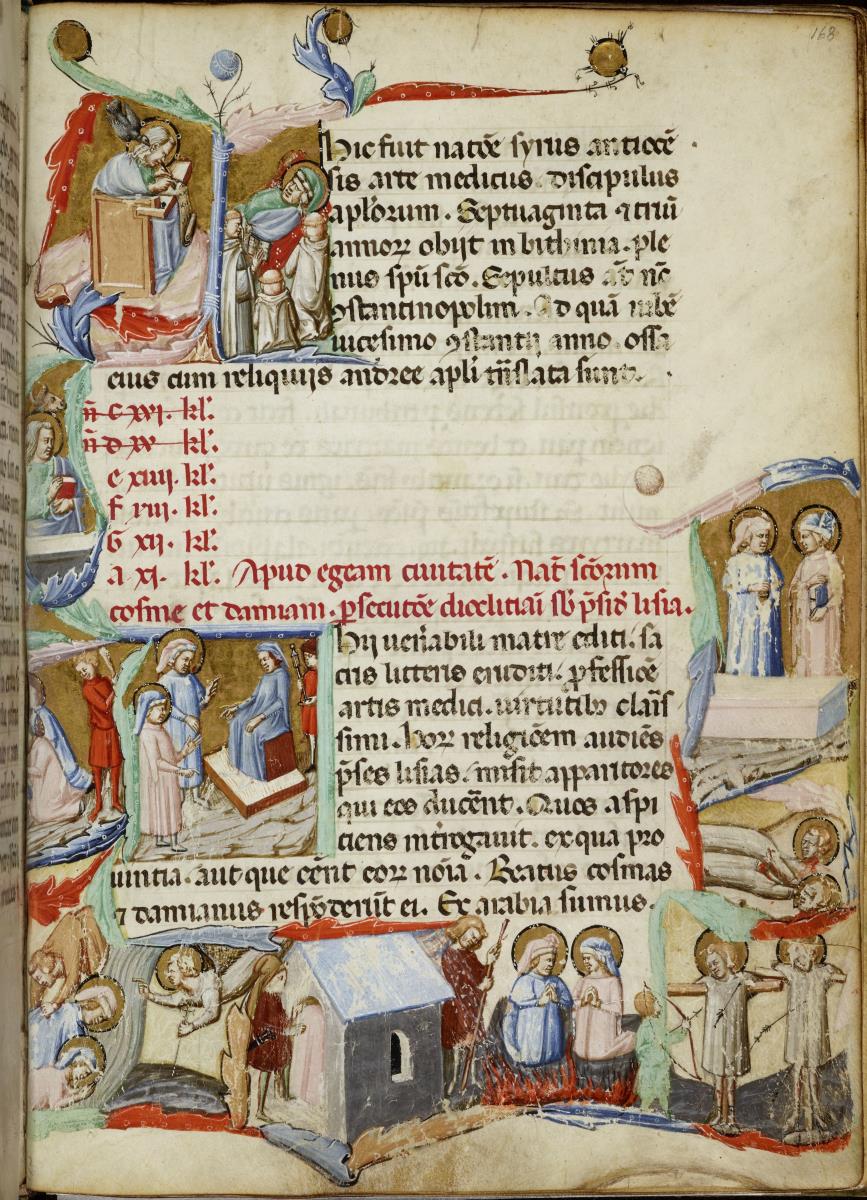 168
Hic fuit natōe syrus antiocē
sis arte medicus. discipulus
aplorum. Septuaginta ⁊ triū
annorꝝ obijt in bithinia. ple
nus spū scō. Sepultus
ꝯstantinopolim. Ad quā
uicesimo ꝯstantij anno. ossa
eius cum reliquijs andree apli trāslata sunt.
ñ c xvi. kl'.
ñ d xv kl'.
e xiiii. kl'.
f xiii. kl'.
G xii. kl'.
a xi. kl'. Apud egeam ciuitatē. Nat' scōrum
cosme et damiani. ꝑsecutōe dioclitiāi sb' p̄sid' lisia.
Hij uen'abili matre editi. sa
cris litteris eruditi. ꝓfessiōe
artis medici. uirtutib' claris
simi. horꝝ religiōem audiēs
p̄ses lisias. misit apparitores
qui eos ducēnt. Quos aspi
ciens int'rogauit. ex qua pro
uintia. aut que eēnt eorꝝ noīa. Beatus cosmas
⁊ damianus respōderūt ei. Ex arabia sumus.